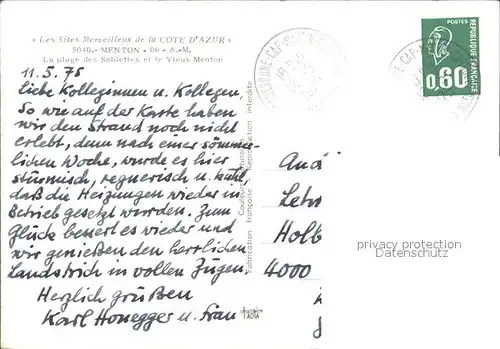 « Les Sites Merveilleux de la COTE D'AZUR »
5040.- MENTON - 06 - A.-M.
La plage des Sablettes et le Vieux Menton
11.5.75
Liebe Kolleginnen u. Kollegen,
So wie auf der Karte haben
wir den Strand noch nicht
erlebt, denn nach einer sommer-
lichen Woche, wurde es hier
stürmisch, regnerisch u. kühl,
daß die Heizungen wieder in
Betrieb gesetzt wurden. Zum
Glück bessert es wieder und
wir genießen den herrlichen
Landstrich in vollen Zügen.
Herzlich grüßen
Karl Honegger u. Frau
Fabrication française Reproduction interdite
POSTES
REPUBLIQUE FRANÇAISE
0,60
Lehr
Holb
4000
privacy protection
Datenschutz